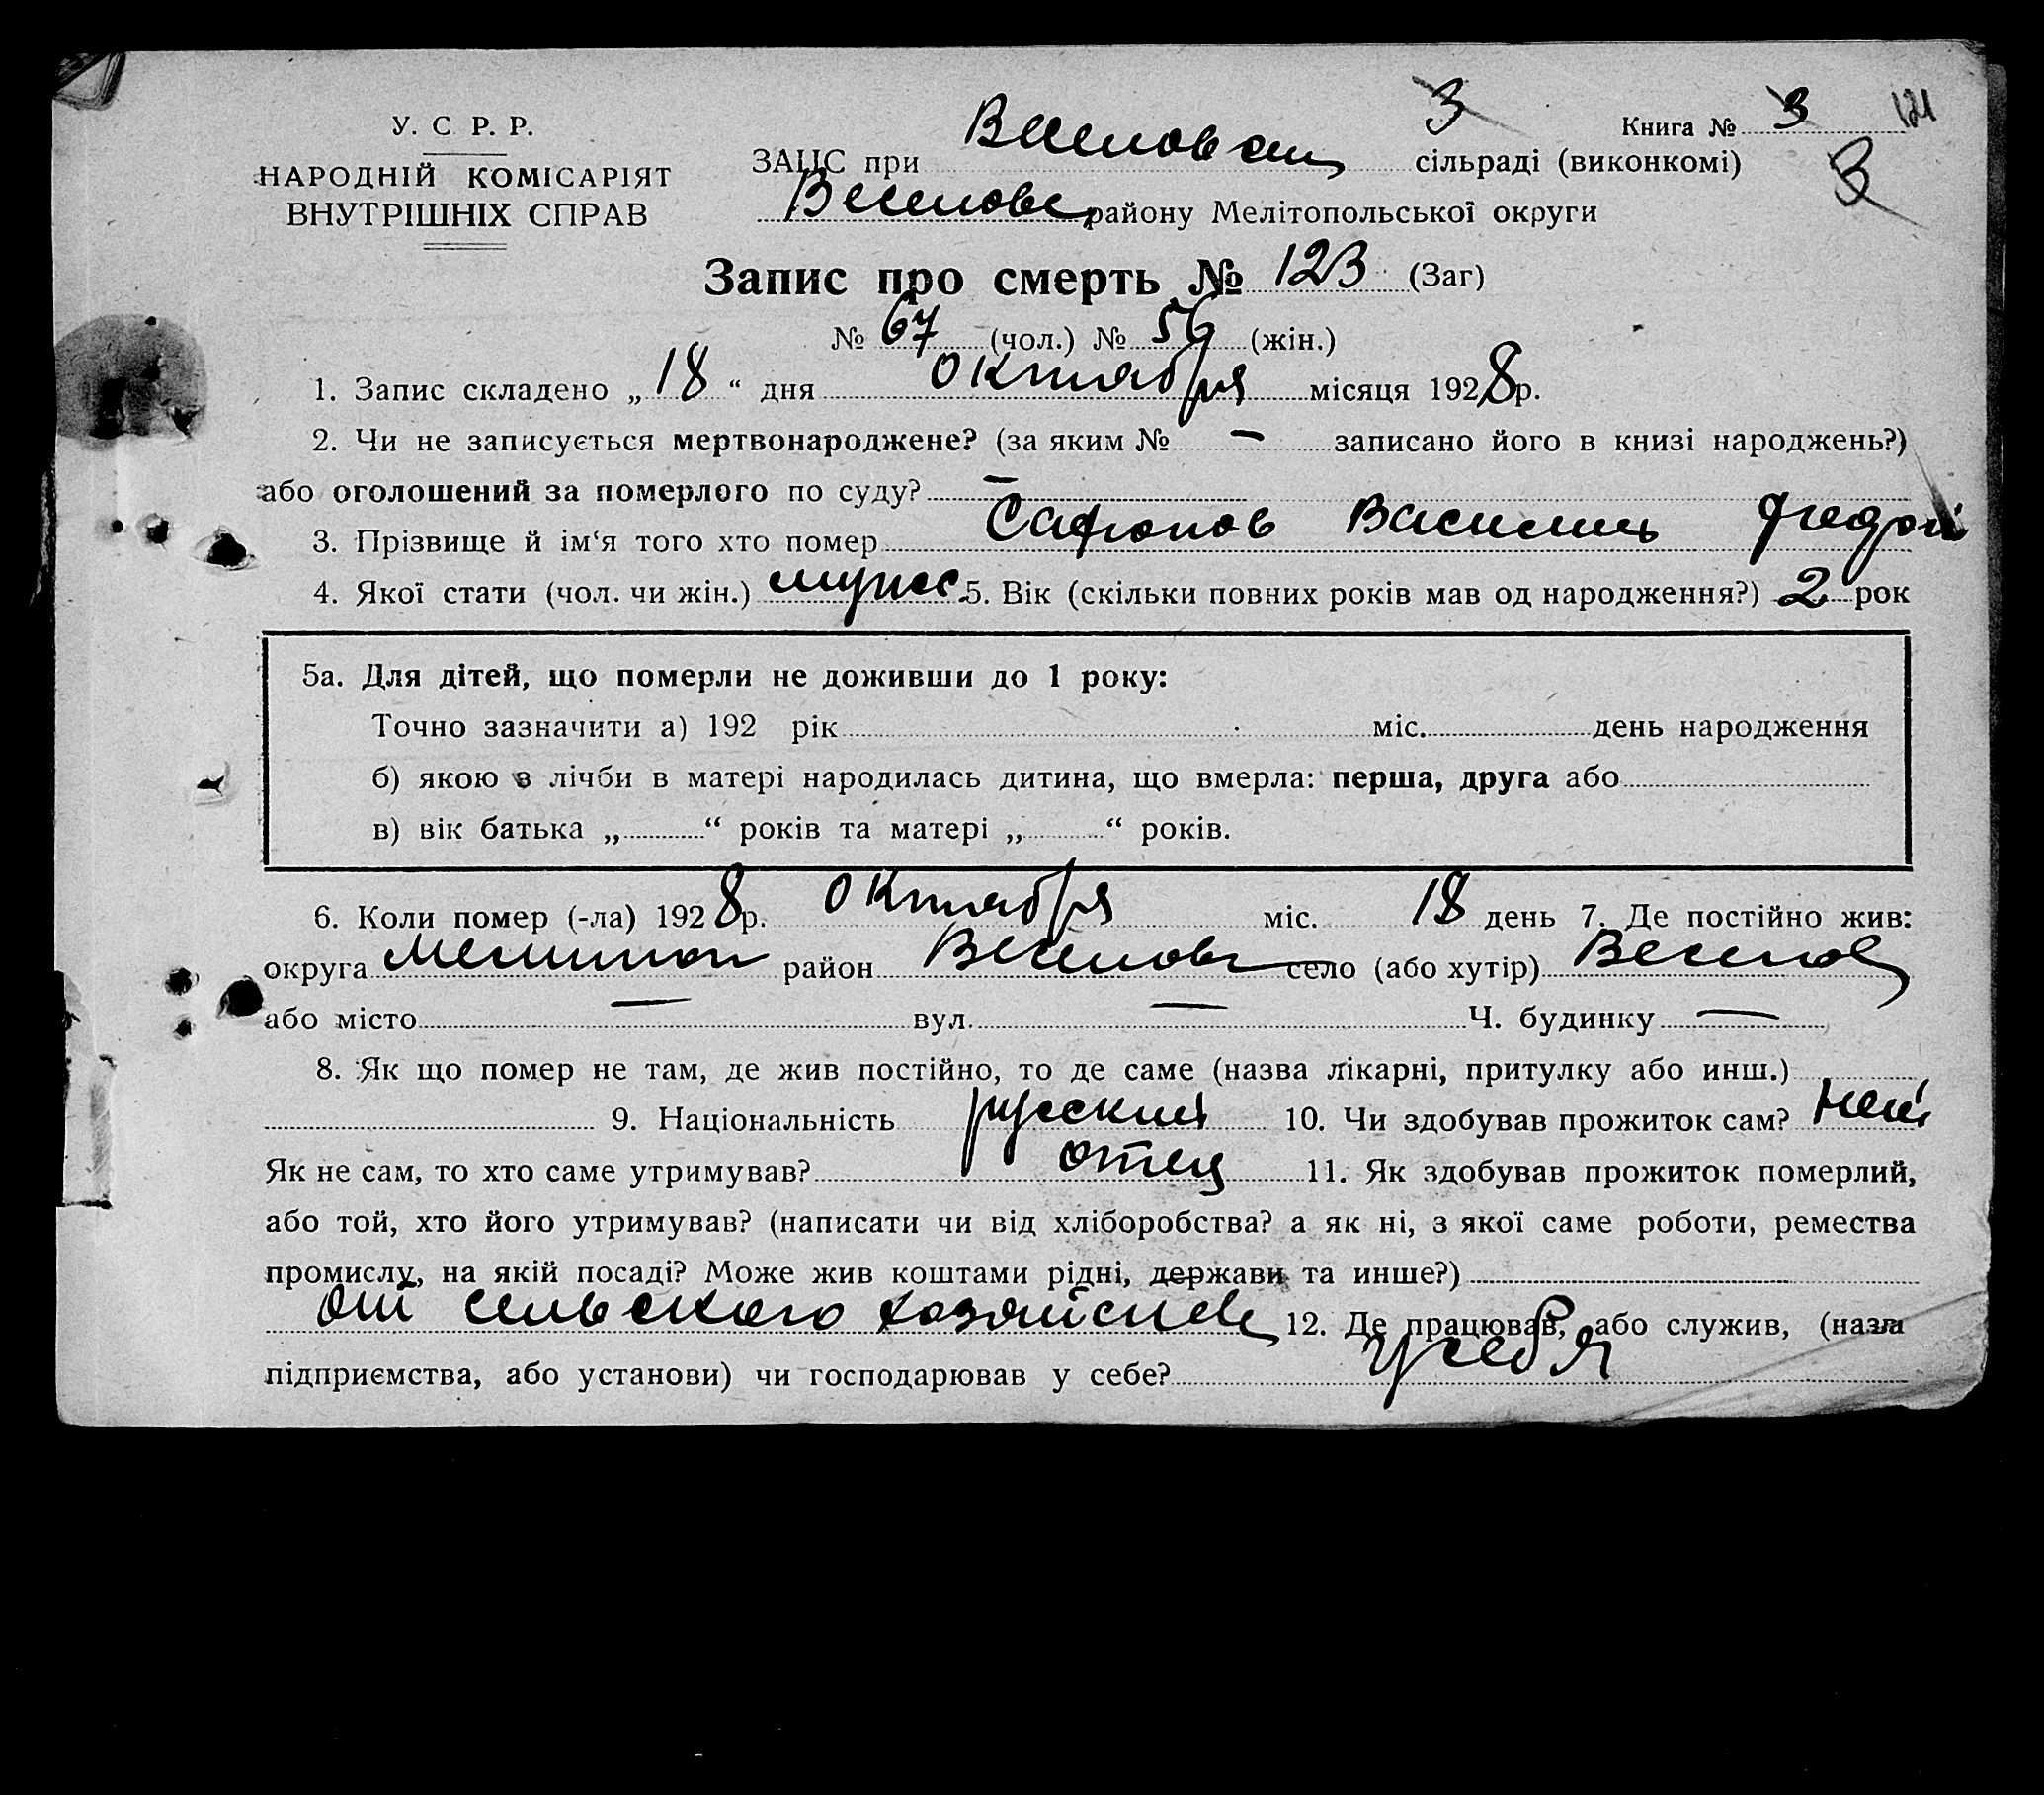 У. С Р. Р.
НАРОДНІЙ КОМІСАРІЯТ
ВНУТРІШНІХ СПРАВ
3 Книга № 3 121
ЗАЦС при сільраді (виконкомі) 3
Веселовс району Мелітопольської округи
Запис про смерть № 123 (Заг)
№ 67 (чол.) № 56 (жін.)
1. Запис складено „ 18 “ дня Октября місяця 1928р.
2. Чи не записується мертвонароджене? (за яким № — записано його в книзі народжень?)
або оголошений за померлого по суду? —
3. Прізвище й ім‘я того хто помер Сафонов Василий
4. Якої стати (чол. чи жін.) мужс. 5. Вік (скільки повних років мав од народження?) 2 рок
5а. Для дітей, що померли не доживши до 1 року:
Точно зазначити а) 192 рік міс. день народження
б) якою з лічби в матері народилась дитина, що вмерла: перша, друга або
в) вік батька „ “ років та матері „ “ років.
6. Коли помер (-ла) 1928р. Октября міс. 18 день 7. Де постійно жив:
округа Мелитоп район Веселовс село (або хутір) Веселов
або місто — вул. — Ч. будинку —
8. Як що помер не там, де жив постійно, то де саме (назва лікарні, притулку або инш.)
9. Національність русский 10. Чи здобував прожиток сам?
Як не сам, то хто саме утримував? отец 11. Як здобував прожиток померлий,
або той, хто його утримував? (написати чи від хліборобства? а як ні, з якої саме роботи, ремества
промислу, на якій посаді? Може жив коштами рідні, держави та инше?)
от сельского хозяйства 12. Де працював, або служив, (назва
підприємства, або установи) чи господарював у себе? у себя